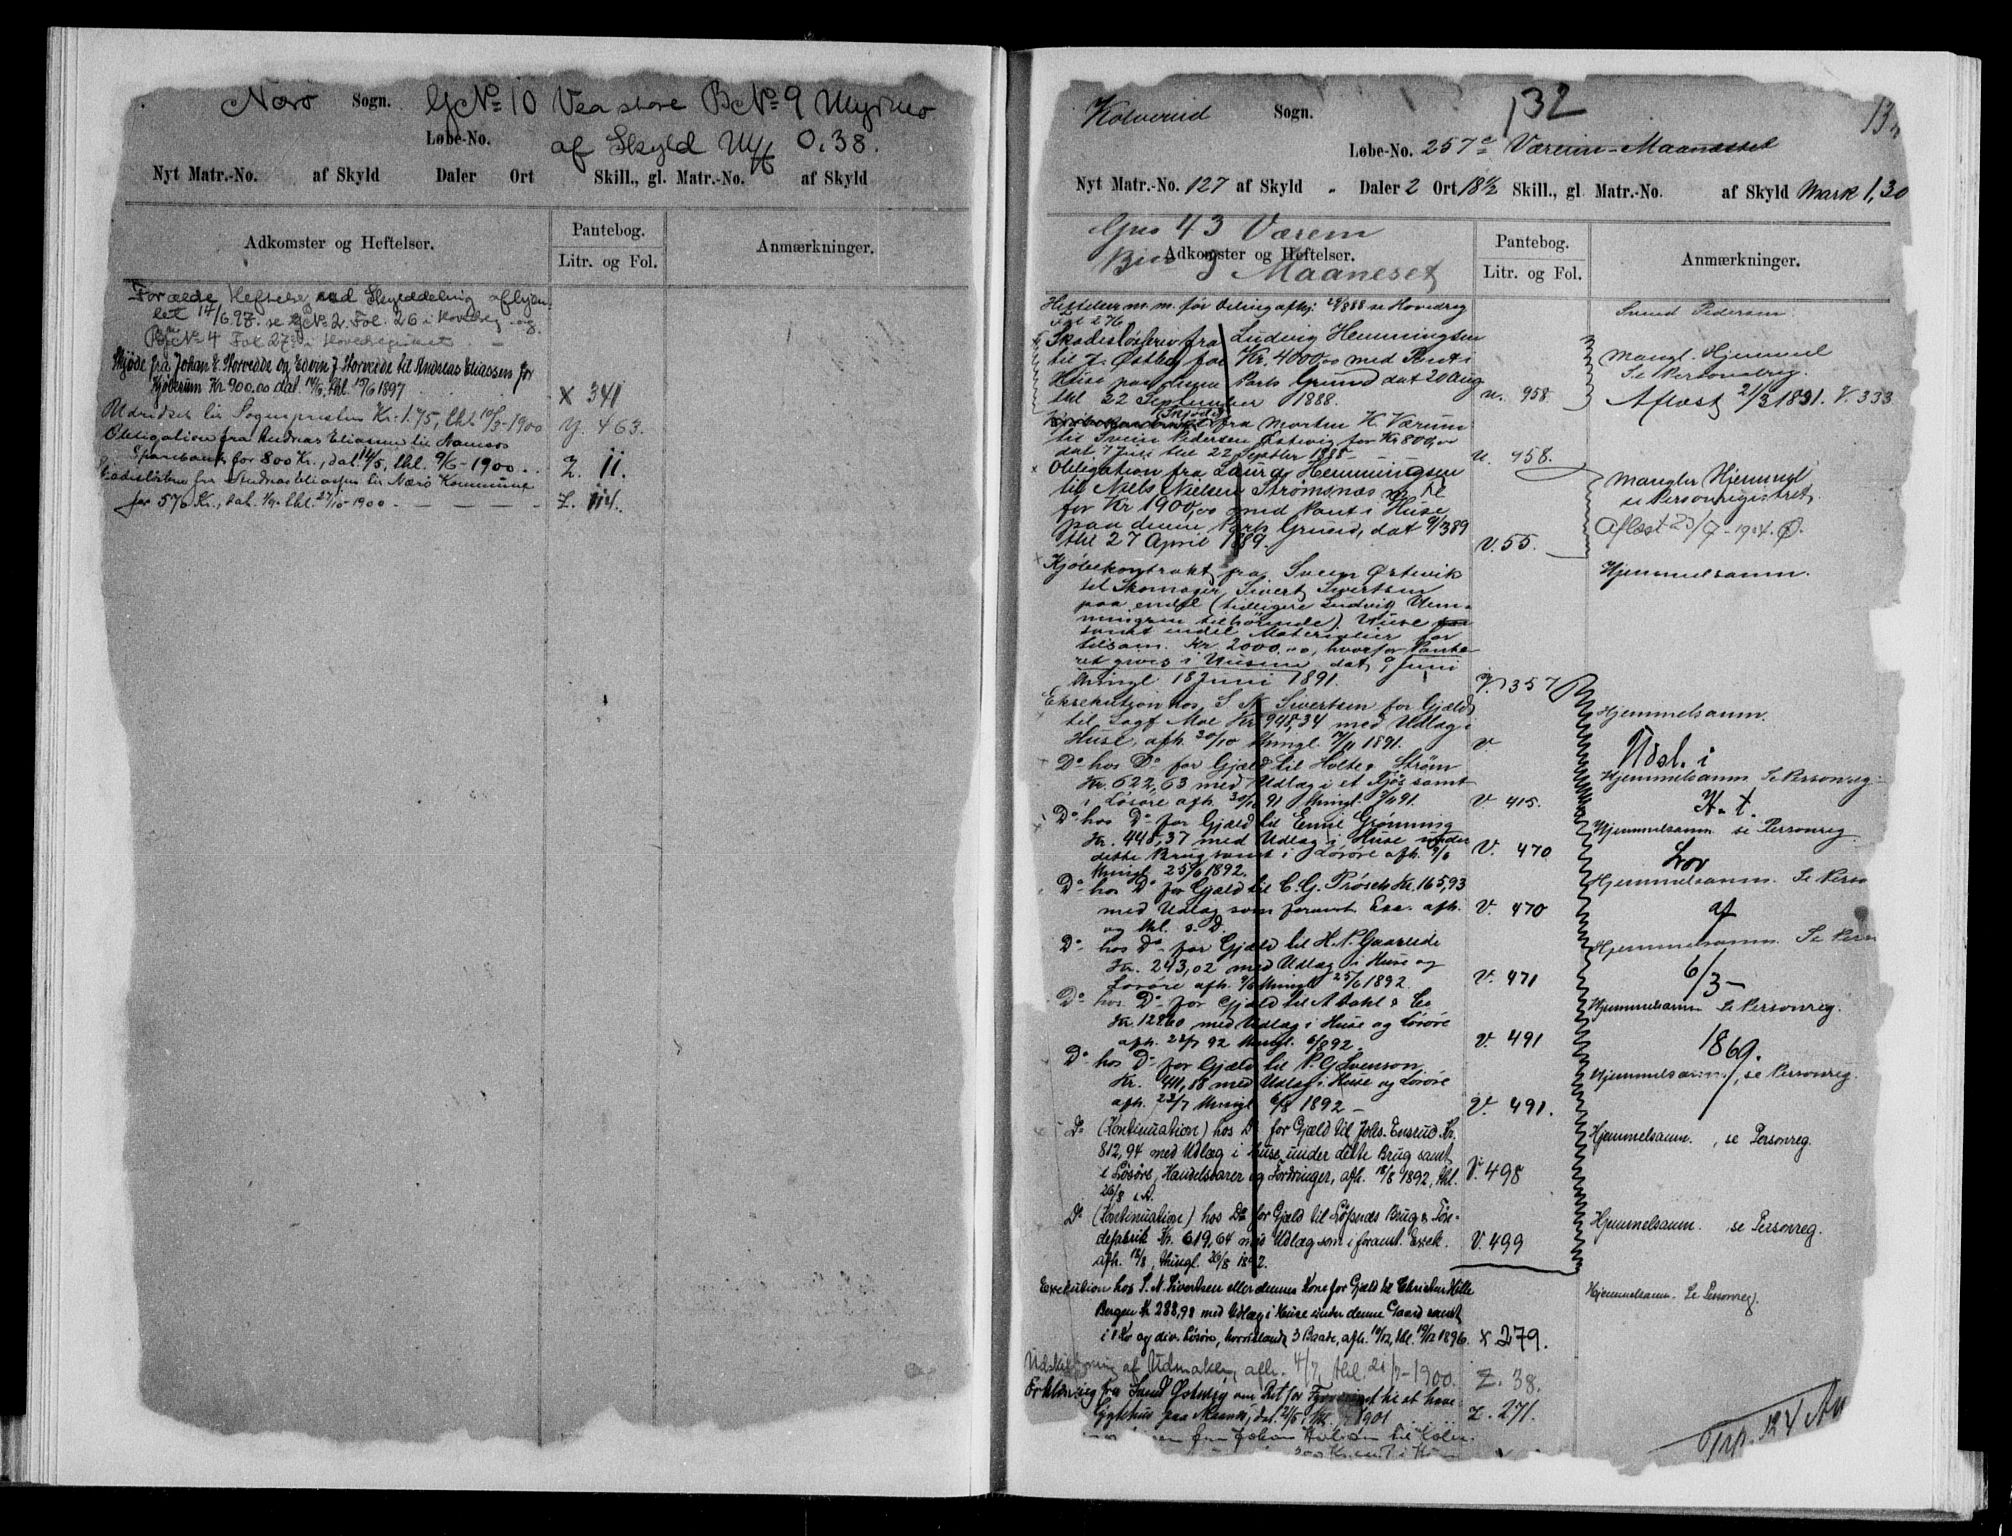 Nærø Sogn. GNo 10 Vea store BNo 9 Myrmo
Løbe-No. af Skyld Mk 0.38.
Nyt Matr.-No. af Skyld Daler Ort Skill., gl. Matr.-No. af Skyld
Adkomster og Heftelser.
Pantebog.
Litr. og Fol.
Anmærkninger.
Forælde Heftelse ved Skylddeling afhjem-
let 14/6 97. se GNo 2. Fol. 26 i Hovedreg. og
BNo 4 Fol. 27 i Hovedregistret.
Skjøde fra Johan E. Horvedde og Edvin J. Horvedde til Andreas Eliassen for
Kjøbesum Kr 900,00 dat. thl. 19/6 1897 X 341
Udridset til Sognepresten Kr. 1.75, thl. 10/3-1900 Y. 463.
Obligation fra Andreas Eliassen til Namsos
Sparebank for 800 Kr., dat. 14/5, thl. 9/6-1900. Z. 11.
Skadesløsbrev fra Andreas Eliassen til Nærø Kommune
for 576 Kr., dat. thl. 27/10-1900 Z. 114.
Kolvereid Sogn. 132
Løbe-No. 257c Værem-Maanesset
Nyt Matr.-No. 127 af Skyld - Daler 2 Ort 18 1/2 Skill., gl. Matr.-No. af Skyld Mark 1,30
Gno 43 Værem
Bno 3 Maaneset
Adkomster og Heftelser.
Pantebog.
Litr. og Fol.
Anmærkninger.
Heftelser m. m. før Deling afhj. 888 se Hovedreg
Fol 276
Svend Pedersen
Skadesløsbrev fra Ludvig Hemmingsen
til J. Østby for Kr. 4000,00 med Pant i
Huse paa dennes Parts Grund dat 20 Aug
thl 22 September 1888. U. 958
Mangl. Hjemmel
Se Personreg.
Aflæst 2/3 1891. V. 333
Skjøde fra Morten K. Værum
til Svein Pedersen Østevig for Kr 800,00
dat 7 Juli thl 22 Septbr 1888 U. 958.
Obligation fra Laurds Hemmingsen
til Niels Nielsen Strømsnæs
for Kr 1900,00 med Pant i Huse
paa denne Parts Grund, dat 9/3 89
thl 27 April 1889. V. 55.
Mangler Hjemmel
se Personregistret
Aflæst 23/7-1904. Ø.
Kjøbekontrakt fra Svein Østevik
til Skomager Sivert Sivertsen
paa endel (tidligere Ludvig Hem-
mingsen tilhørende) Huse
samt endel Materialier for
tilsam. Kr 2000,00, hvorfor Pante-
ret gives i Husene, dat. 9 Juni
thingl 18 Juni 1891. V. 357
Hjemmelsamm.
Eksekution hos S N Sivertsen for Gjæld
til Sagf Moe Kr 945,34 med Udlæg i
Huse, afh. 20/10 thingl. 7/11 1891. V.
Hjemmelsamm.
Do hos Do for Gjæld til Holte & Strøm
Kr. 622,63 med Udlæg i et Fjøs samt
i Løsøre afh. 30/10 91 thingl. 7/11 91. V. 415.
Udsl. i
Hjemmelsamm Se Personreg.
Do hos Do for Gjæld til Emil Grønning
Kr. 445,37 med Udlæg i Huse under
dette Brug samt i Løsøre afh. 9/6
thingl 25/6 1892. V. 470
H. t.
Hjemmelsamm se Personreg.
Do hos Do for Gjæld til C. G. Prøsch Kr. 165,93
med Udlæg som foranst. Exe. afh.
og thl. s. D. V. 470
Lov
Hjemmelsamm. Se Perso
Do hos Do for Gjæld til H. P. Gaarede
Kr. 243,02 med Udlæg i Huse og
Løsøre afh. 9/6 thingl 25/6 1892. V. 471
af
Hjemmelsamm. Se Pers
Do hos Do for Gjæld til A Dahl & Co
Kr. 128,60 med Udlæg i Huse og Løsøre
afh. 22/7 92 thingl. 6/8 92. V. 491
6/3-
Hjemmelsamm Se Personreg.
Do hos Do for Gjæld til P. G. Svenson
Kr. 411,18 med Udlæg i Huse og Løsøre
afh. 22/7 thingl 6/8 1892 V. 491.
1869.
Hjemmelsamm, se Personreg.
Do (Kontinuation) hos Do for Gjæld til Johs. Ensrud Kr.
812,94 med Udlæg i Huse under dette Brug samt
i Løsøre, Handelsvarer og Fordringer, afh. 18/8 1892, thl.
26/8 s. A. V. 498
Hjemmelsamm. , se Personreg.
Do (Kontinuation) hos Do for Gjæld til Løpsnæs Brug & Tøn-
defabrik Kr. 619,64 med Udlæg som i foranst. Exek.
afh. 18/8, thingl. 26/8 1892. V. 499
Hjemmelsamm. se Personreg.
Exekution hos S. N. Sivertsen eller dennes Kone for Gjæld til Christian Hille
Bergen Kr 288,98 med Udlæg i Huse under denne Gaard samt
i 1 Ko og div. Løsøre, hvoriblandt 3 Baade, afh. 10/12, thl. 19/12 1896. X 279.
Hjemmelsamm. Se Personreg.
Udskiftning af Udmarken, afh. 4/7, thl. 21/7-1900. Z. 38.
Erklæring fra Svend Østevig om Ret for Fyrvæsenet til at have
Lygtehus paa Maanes, dat. 2/5, thl. 1901 Z. 271.
fra Johan
Trp. 124